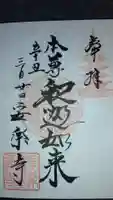 奉拝
本尊
釈迦如来
辛丑
三月廿日
安楽寺